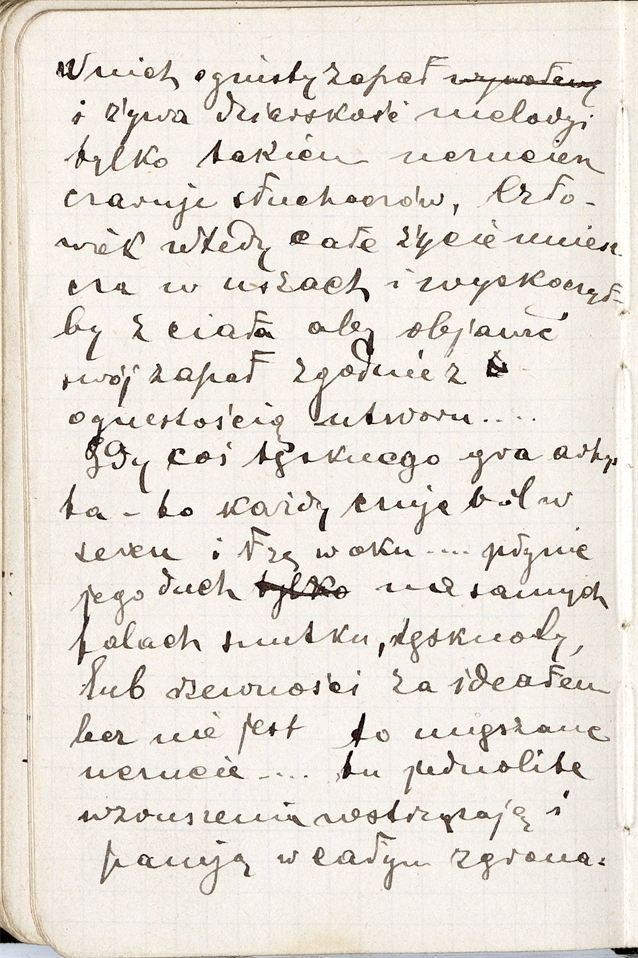 W nich ognisty zapał
i żywa dziarskość melodyi
tylko takiem uczuciem
czaruje słuchaczów, Czło-
wiek wtedy całe życie miesz
cza w uszach i wyskoczył-
by z ciała aby objawić
swój zapał zgodnie z
ognistością utworu.....
Gdy coś tęsknego gra artys
ta - to każdy czuje ból w
sercu i łzę w oku.... płynie
jego duch tylko na samych
falach smutku, tęsknoty,
lub rzewności za ideałem
bez nie jest to mięszane
uczucie.... tu jednolite
wzruszenia wstrząsają i
panują w całym zgroma-